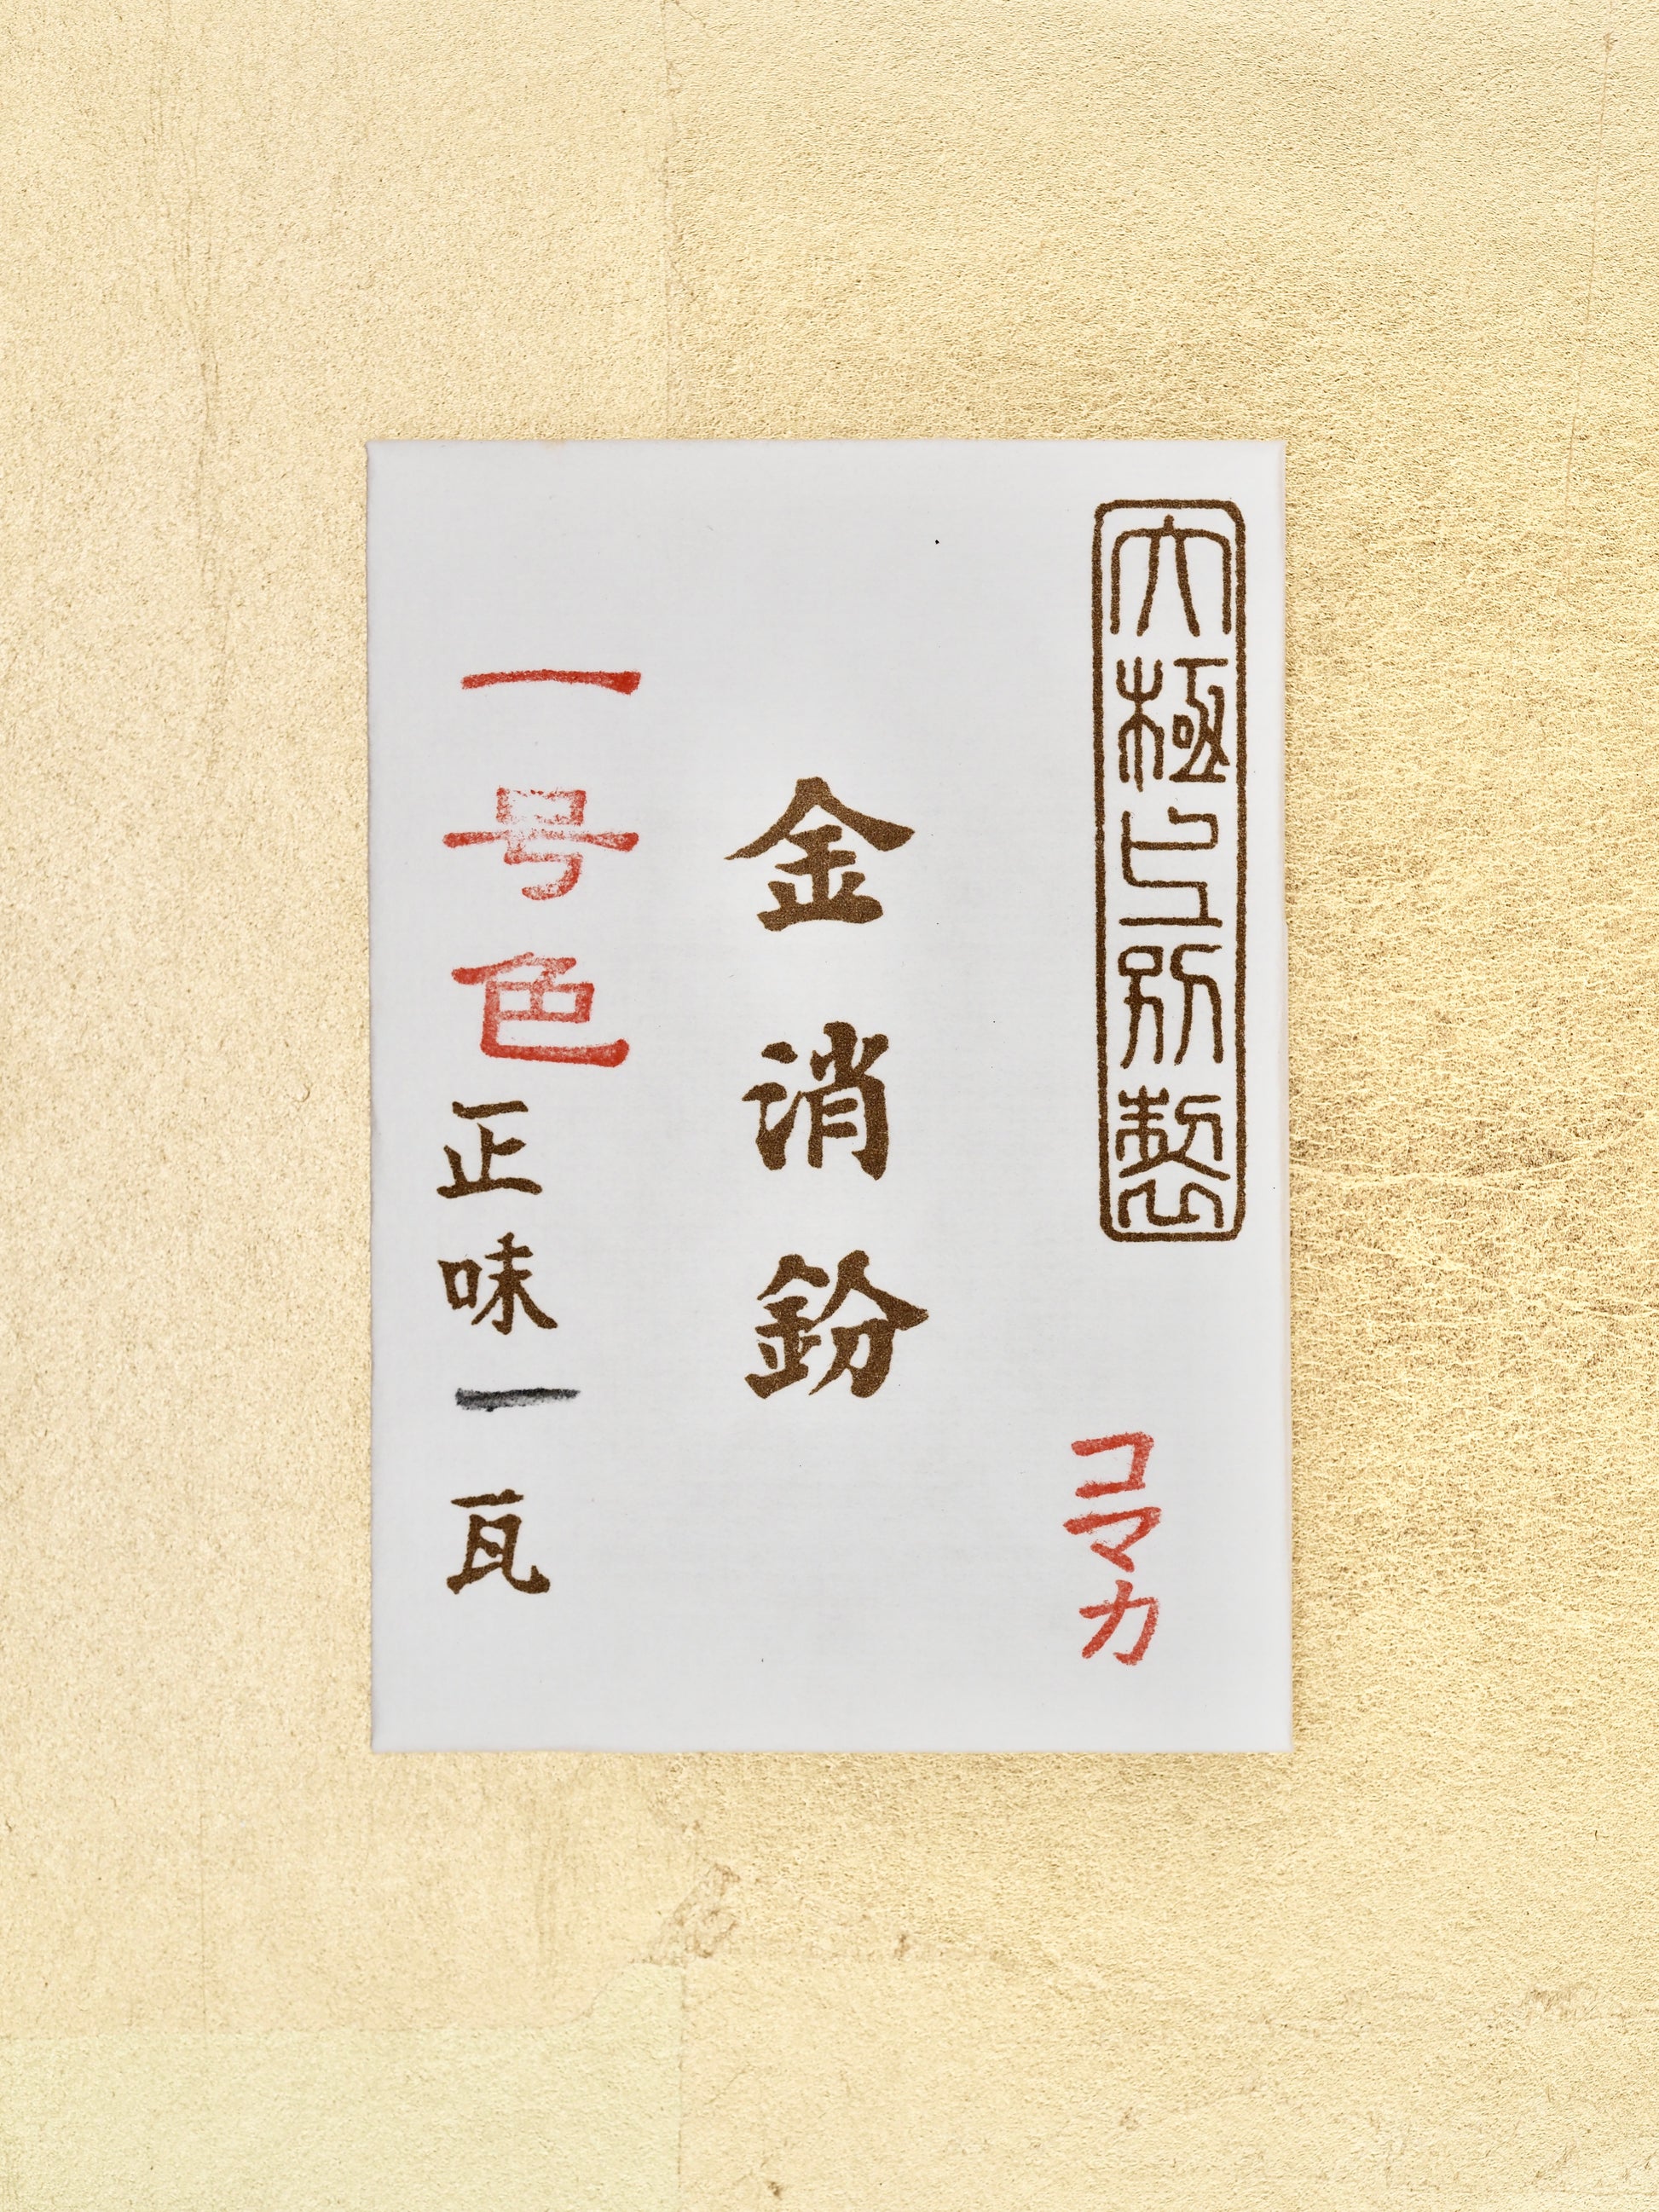 大極上別製
コマカ
金消鈖
一号色
正味一瓦